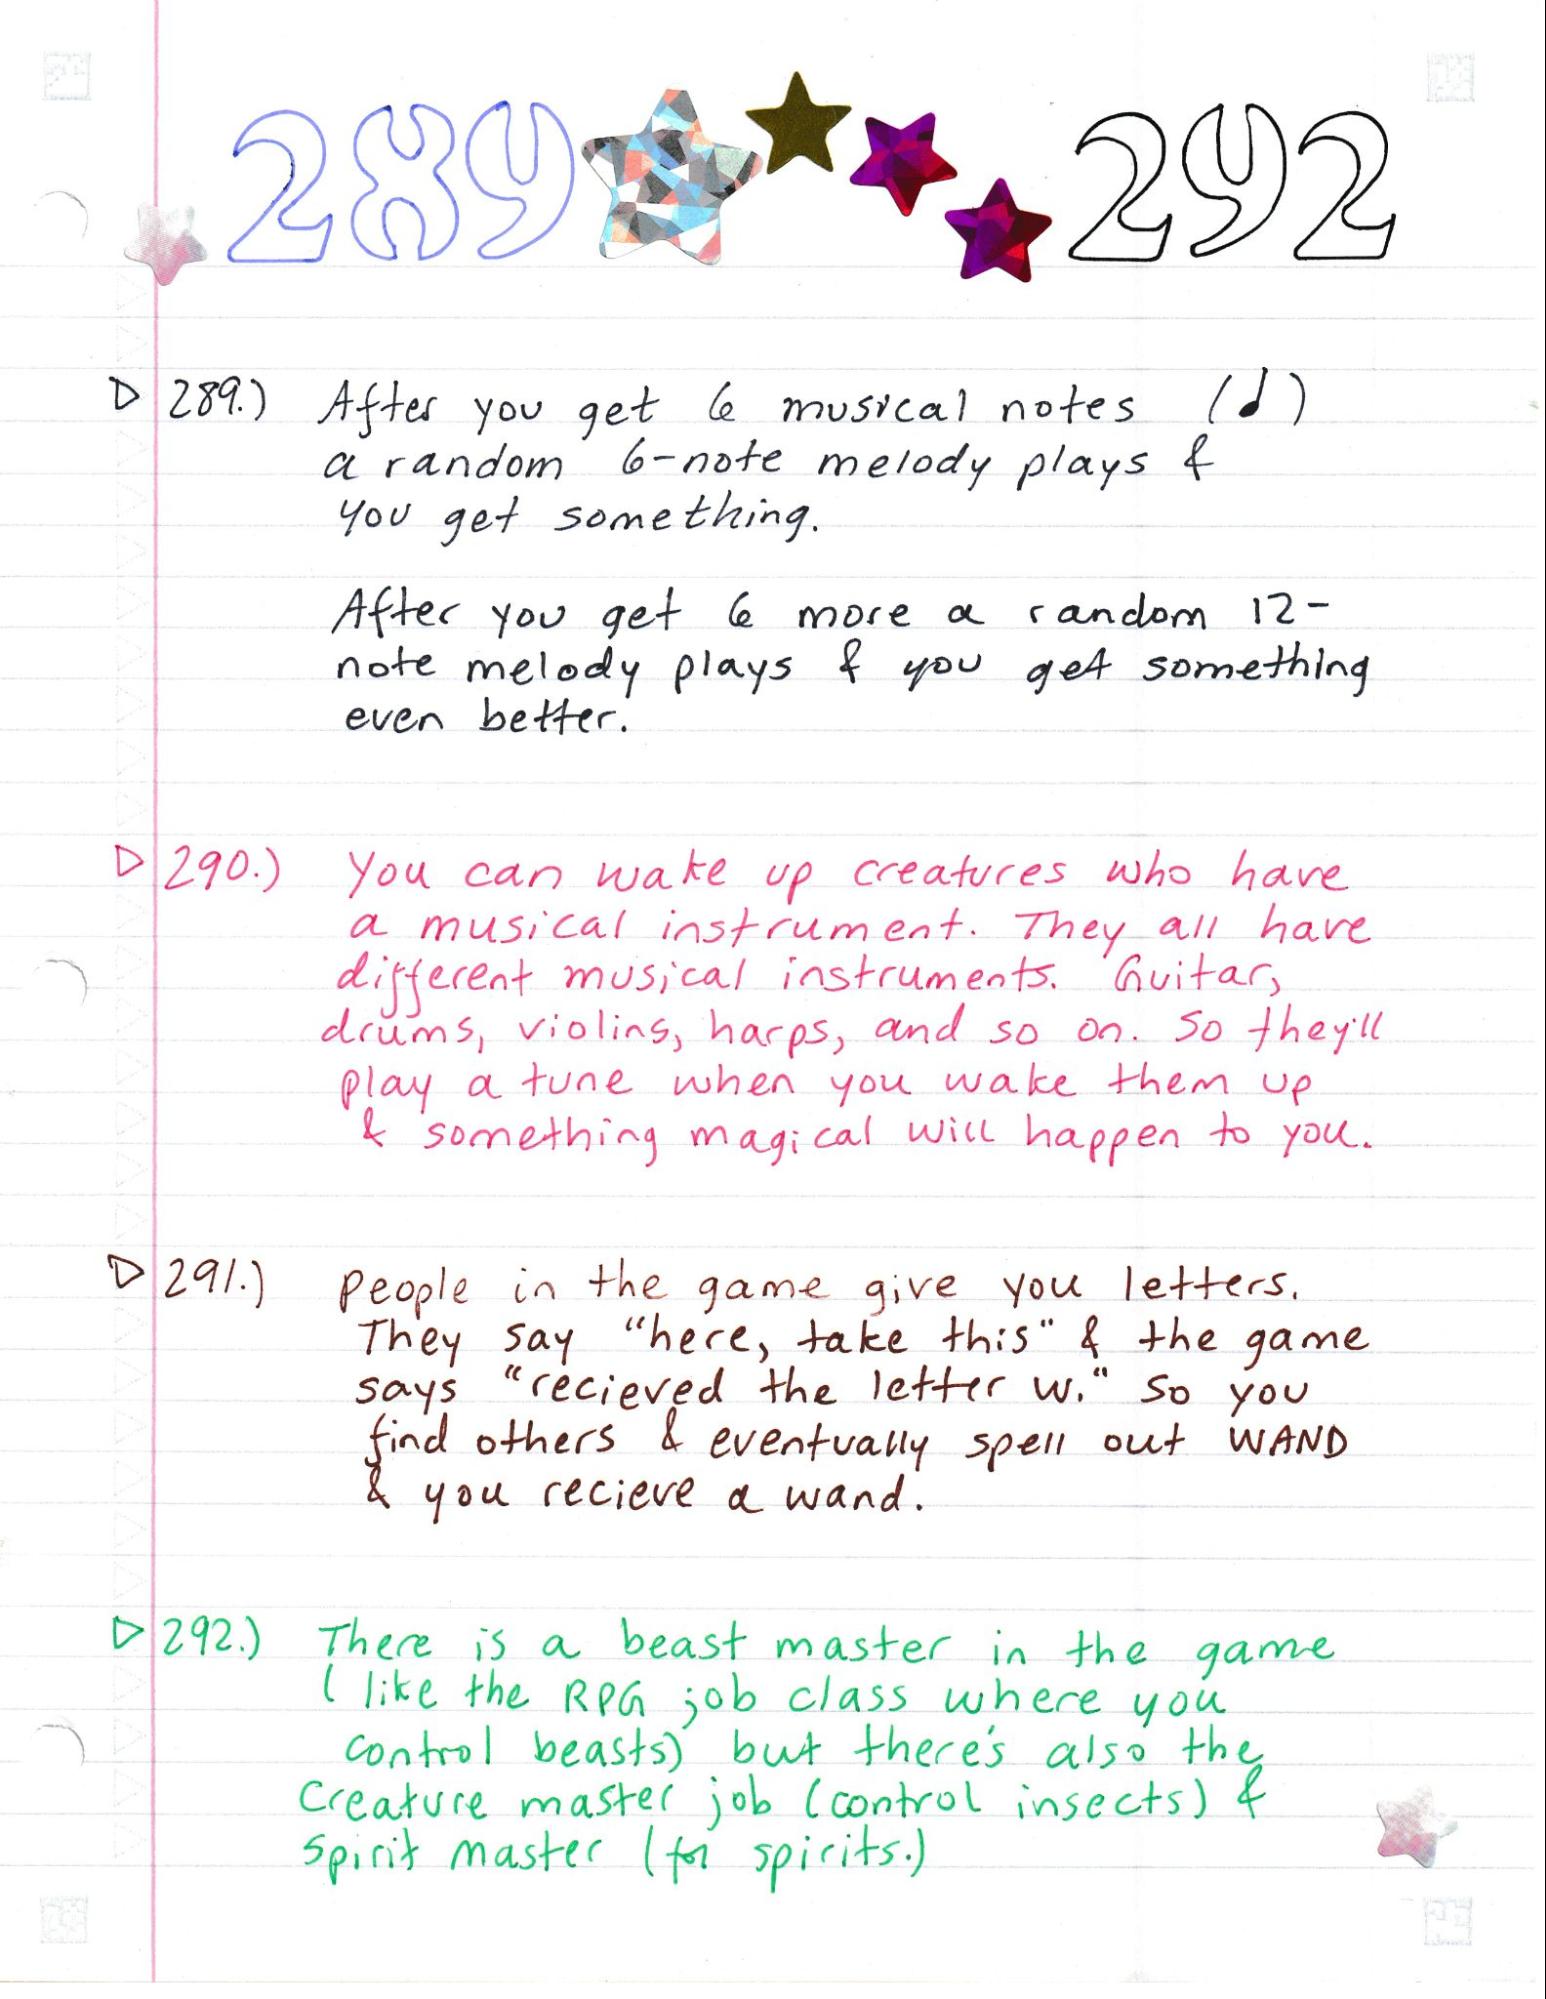 289 292
289.) After you get 6 musical notes (♩)
a random 6-note melody plays &
you get something.
After you get 6 more a random 12-
note melody plays & you get something
even better.
290.) You can wake up creatures who have
a musical instrument. They all have
different musical instruments. Guitar,
drums, violins, harps, and so on. So they'll
play a tune when you wake them up
& something magical will happen to you.
291.) People in the game give you letters.
They say "here, take this" & the game
says "recieved the letter w." So you
find others & eventually spell out WAND
& you recieve a wand.
292.) There is a beast master in the game
(like the RPG job class where you
control beasts) but there's also the
Creature master job (control insects) &
Spirit master (for spirits.)